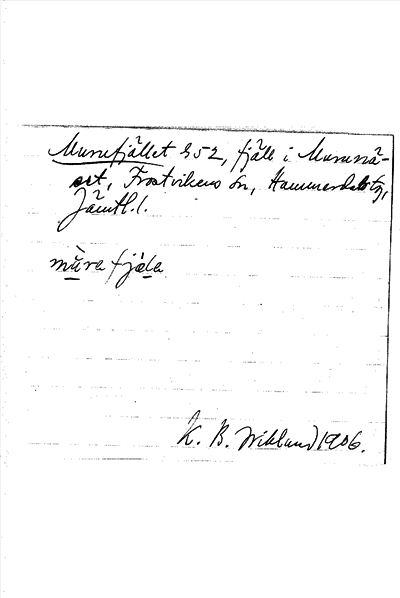 Murufjället 852, fjäll i Murunä-
set, Frostvikens sn, Hammerdals tg,
Jämtl. l.
mùru fjæ̀la
K. B. Wiklund 1906.